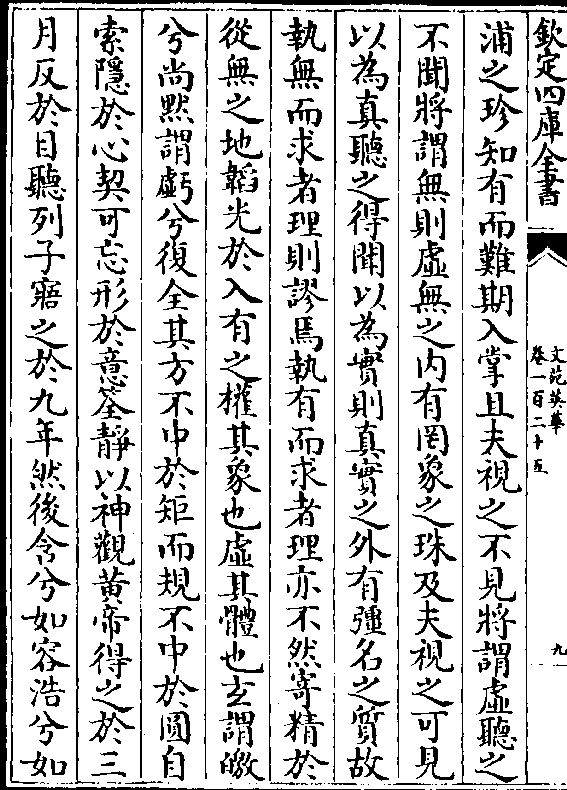 欽定四庫全書
文苑英華
卷一百二十五
九
浦之珍知有而難期入掌且夫視之不見將謂虛聽之
不聞將謂無則虛無之内有罔象之珠及夫視之可見
以為真聽之得聞以為實則真實之外有彊名之質故
執無而求者理則謬焉執有而求者理亦不然寄精於
從無之地韜光於入有之權其象也虛其體也玄謂皦
兮尚黙謂虧兮復全其方不中於矩而規不中於圓自
索隱於心契可忘形於意筌靜以神觀黃帝得之於三
月反於目聽列子寤之於九年然後含兮如容浩兮如